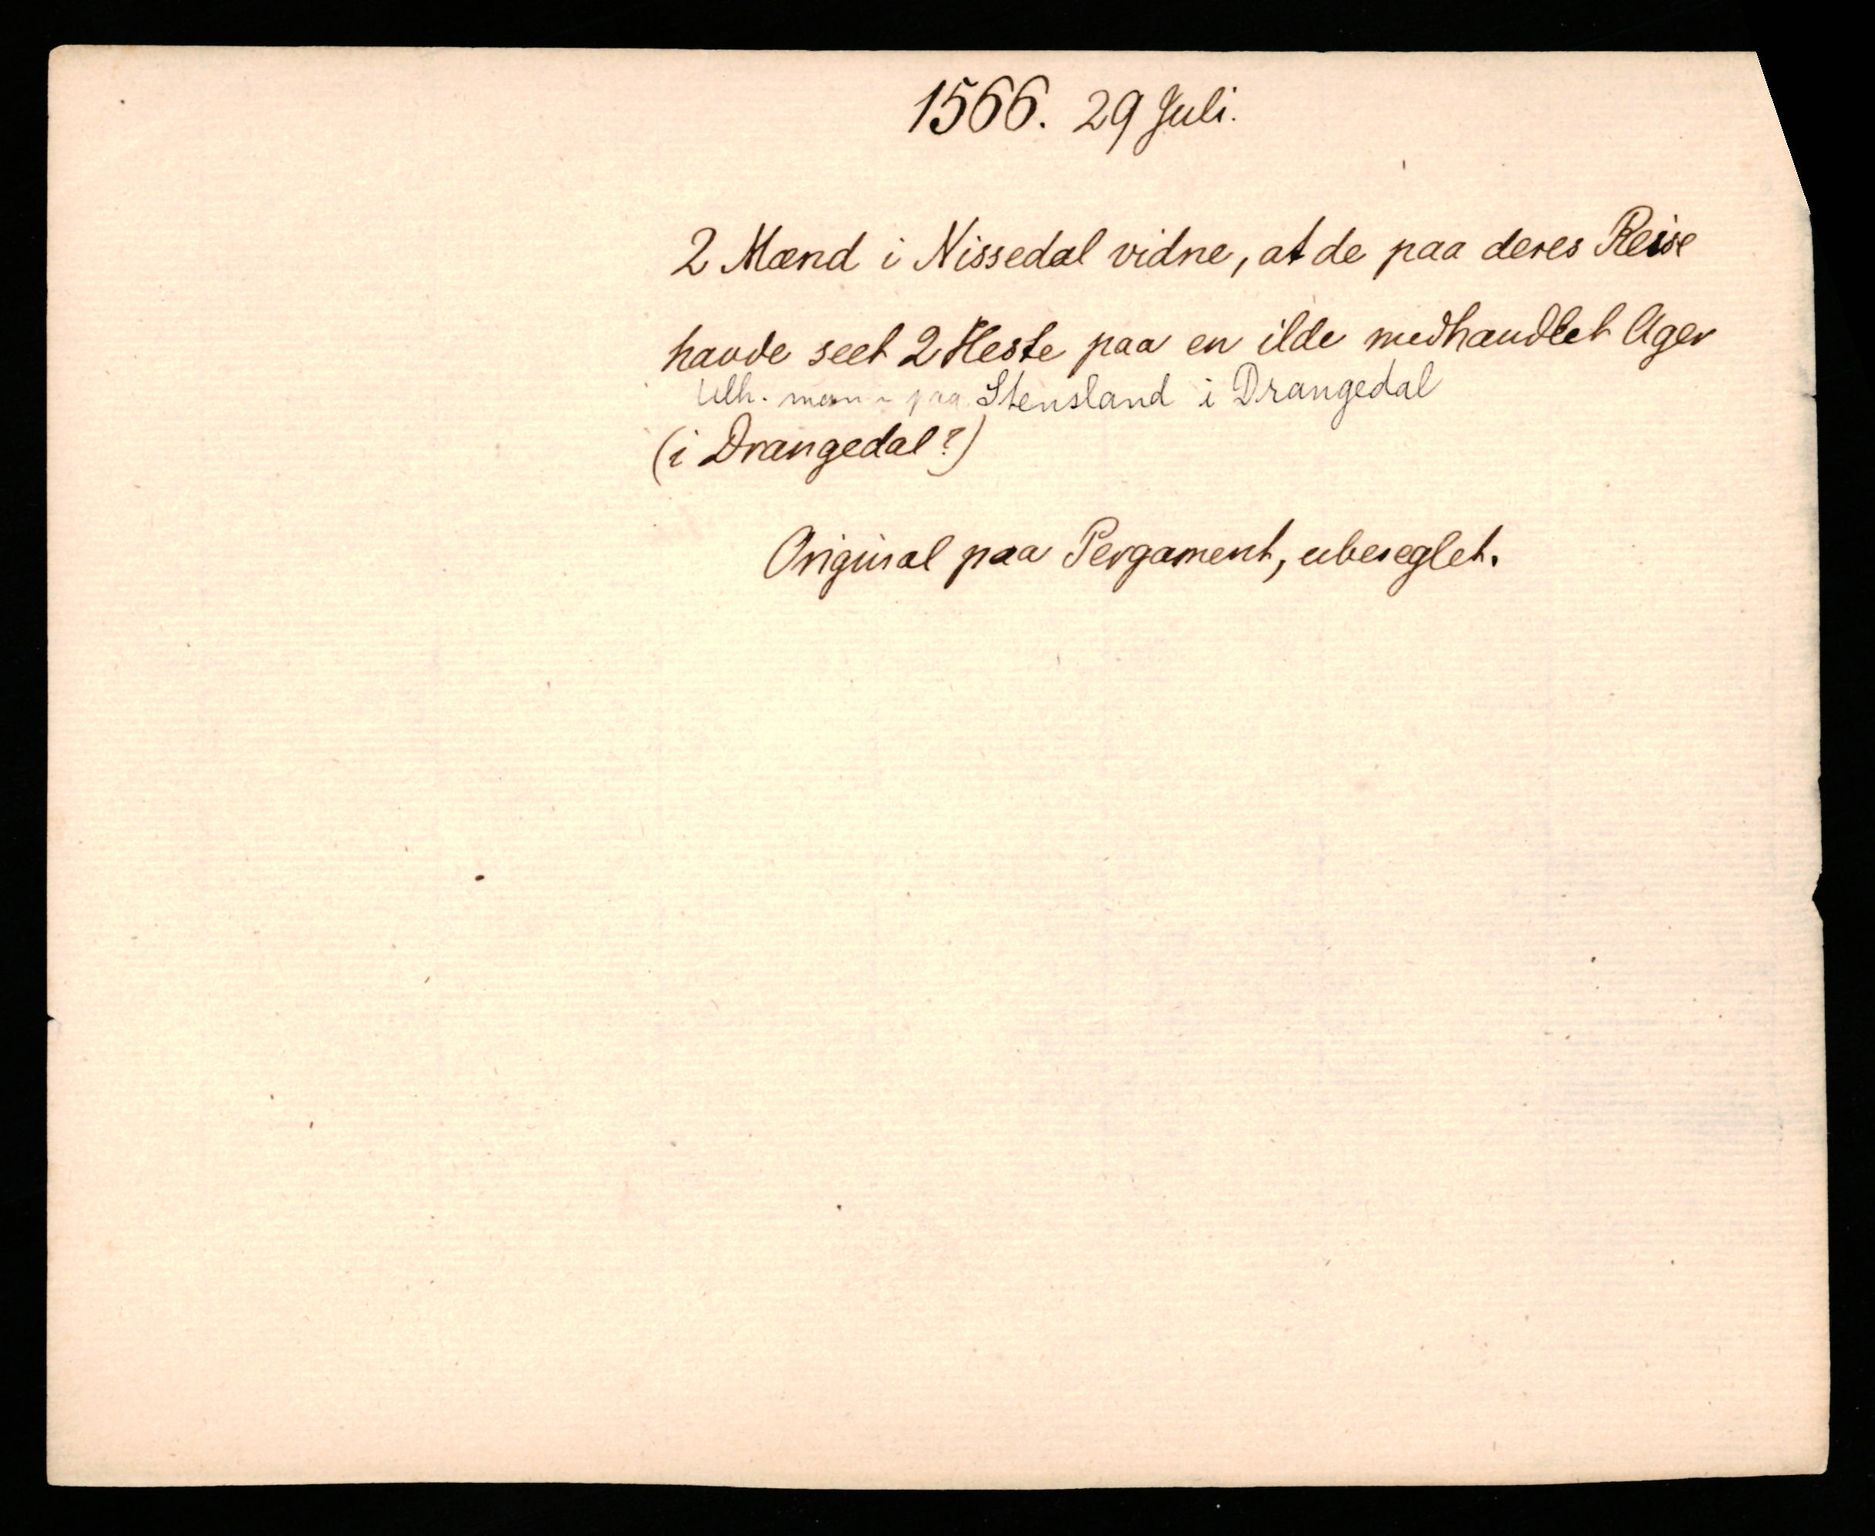 1566. 29 Juli.
2 Mænd i Nissedal vidne, at de paa deres Reise
havde seet 2 Heste paa en ilde medhandlet Ager
paa Stensland i Drangedal
(i Drangedal?)
Original paa Pergament, ubeseglet.